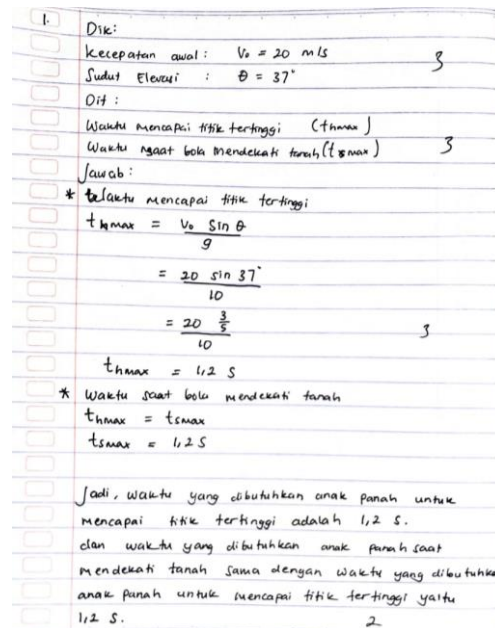 1.
Dik:
kecepatan awal : V₀ = 20 m/s 3
Sudut Elevasi : θ = 37°
Dit :
Waktu mencapai titik tertinggi (thmax)
Waktu saat bola mendekati tanah (tsmax) 3
Jawab :
* Waktu mencapai titik tertinggi
thmax = V₀ sin θ
g
= 20 sin 37°
10
= 20 3/5
10 3
thmax = 1,2 s
* Waktu saat bola mendekati tanah
thmax = tsmax
tsmax = 1,2 s
Jadi, waktu yang dibutuhkan anak panah untuk
mencapai titik tertinggi adalah 1,2 s.
dan waktu yang dibutuhkan anak panah saat
mendekati tanah sama dengan waktu yang dibutuhka
anak panah untuk mencapai titik tertinggi yaitu
1,2 s. 2